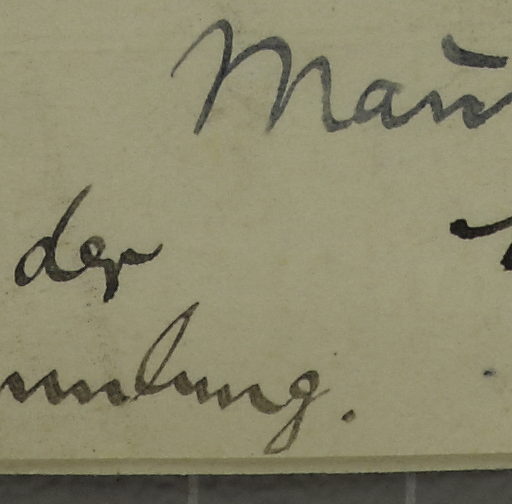 Mäu
der
mmlung.